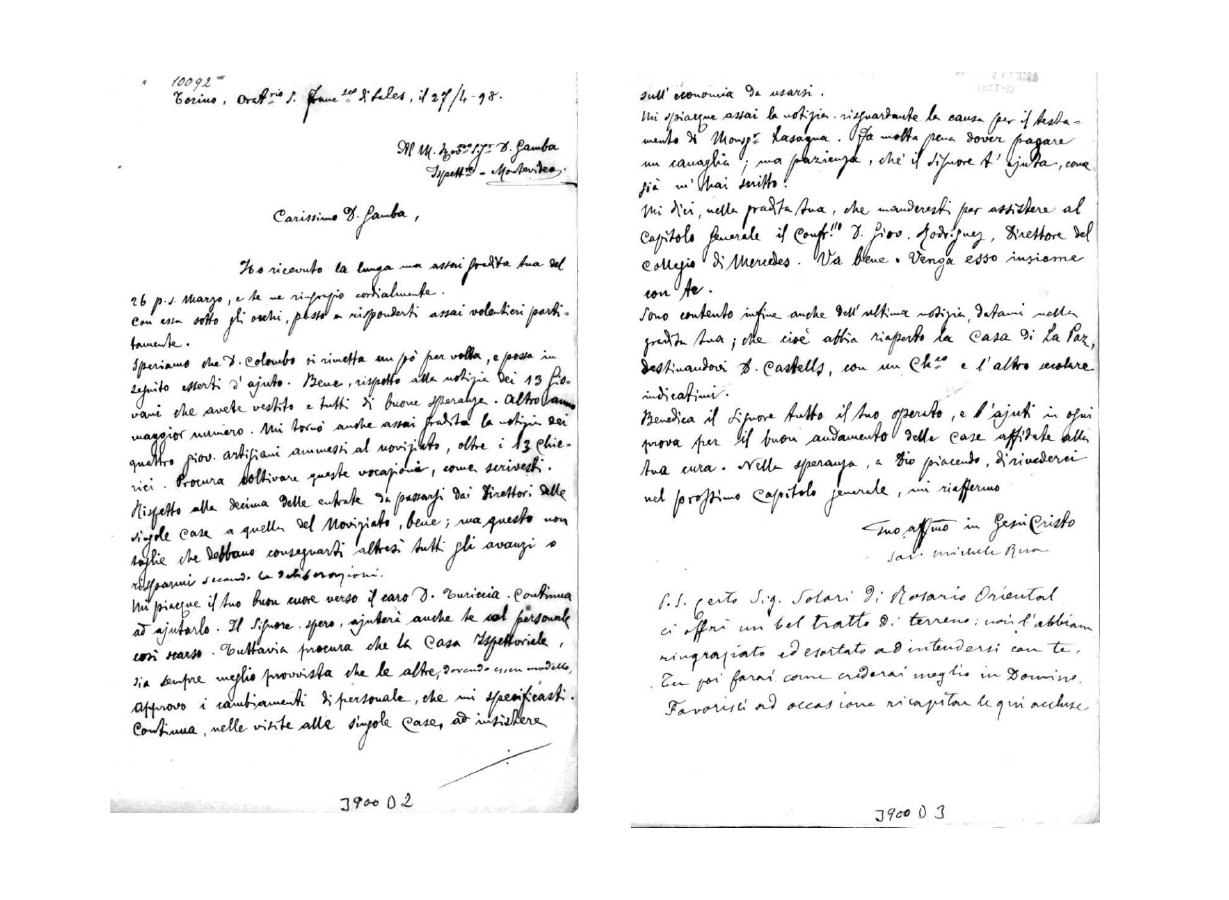 10092
Torino, Orat.rio S. Franc.sco di Sales, il 27/4-98.
Al M. Rev. Sigr D. Gamba
Ispett.re - Montevideo.
Carissimo D. Gamba,
Ho ricevuto la lunga ma assai gradita tua del
26 p.p. Marzo, e te ne ringrazio cordialmente.
Con essa sotto gli occhi, posso a risponderti assai volentieri parti-
tamente.
Speriamo che D. Colombo si rimetta un pò per volta, e possa in
seguito esserti d'ajuto. Bene, rispetto alla notizia dei 13 gio-
vani che avete vestito e tutti di buone speranze. Altro anno
maggior numero. Mi tornò anche assai gradita la notizia dei
quattro giov. artigiani ammessi al noviziato, oltre i 13 chie-
rici. Procura coltivare queste vocazioni, come scrivesti.
Rispetto alla decima delle entrate da passarsi dai Direttori delle
singole Case a quella del Noviziato, bene; ma questo non
toglie che debbano consegnarti altresì tutti gli avanzi o
risparmi secondo le deliberazioni.
Mi piacque il tuo buon cuore verso il caro D. Turiccia. Continua
ad ajutarlo. Il Signore, spero, ajuterà anche te col personale
così scarso. Tuttavia procura che la Casa Ispettoriale,
sia sempre meglio provvista che le altre, dovendo esser modello.
Approvo i cambiamenti di personale, che mi specificasti.
Continua, nelle visite alle singole Case, ad insistere
3900 D 2
sull'economia da usarsi.
Mi spiacque assai la notizia risguardante la causa per il testa-
mento di Monsgr Lasagna. Fa molta pena dover pagare
un canaglia; ma pazienza, ché il Signore t'ajuta, come
già m'hai scritto.
Mi dici, nella gradita tua, che manderesti per assistere al
Capitolo Generale il Confr.llo D. Giov. Rodriguez, Direttore del
Collegio di Mercedes. Va bene. Venga esso insieme
con te.
Sono contento infine anche dell'ultima notizia, datami nella
gradita tua; che cioè abbia riaperto la Casa di La Paz,
destinandovi D. Castells, con un Ch.co e l'altro secolare
indicatimi.
Benedica il Signore tutto il tuo operato, e t'ajuti in ogni
prova per il buon andamento delle case affidate alla
tua cura. Nella speranza, a Dio piacendo, di rivederci
nel prossimo Capitolo generale, mi riaffermo
Tuo affmo in Gesù Cristo
Sac. Michele Rua
P.S. Certo Sig. Solari di Rosario Oriental
ci offrì un bel tratto di terreno; noi l'abbiam
ringraziato ed esortato ad intendersi con te.
Tu poi farai come crederai meglio in Domino.
Favorisci ad occasione ricapitar le qui accluse
3900 D 3